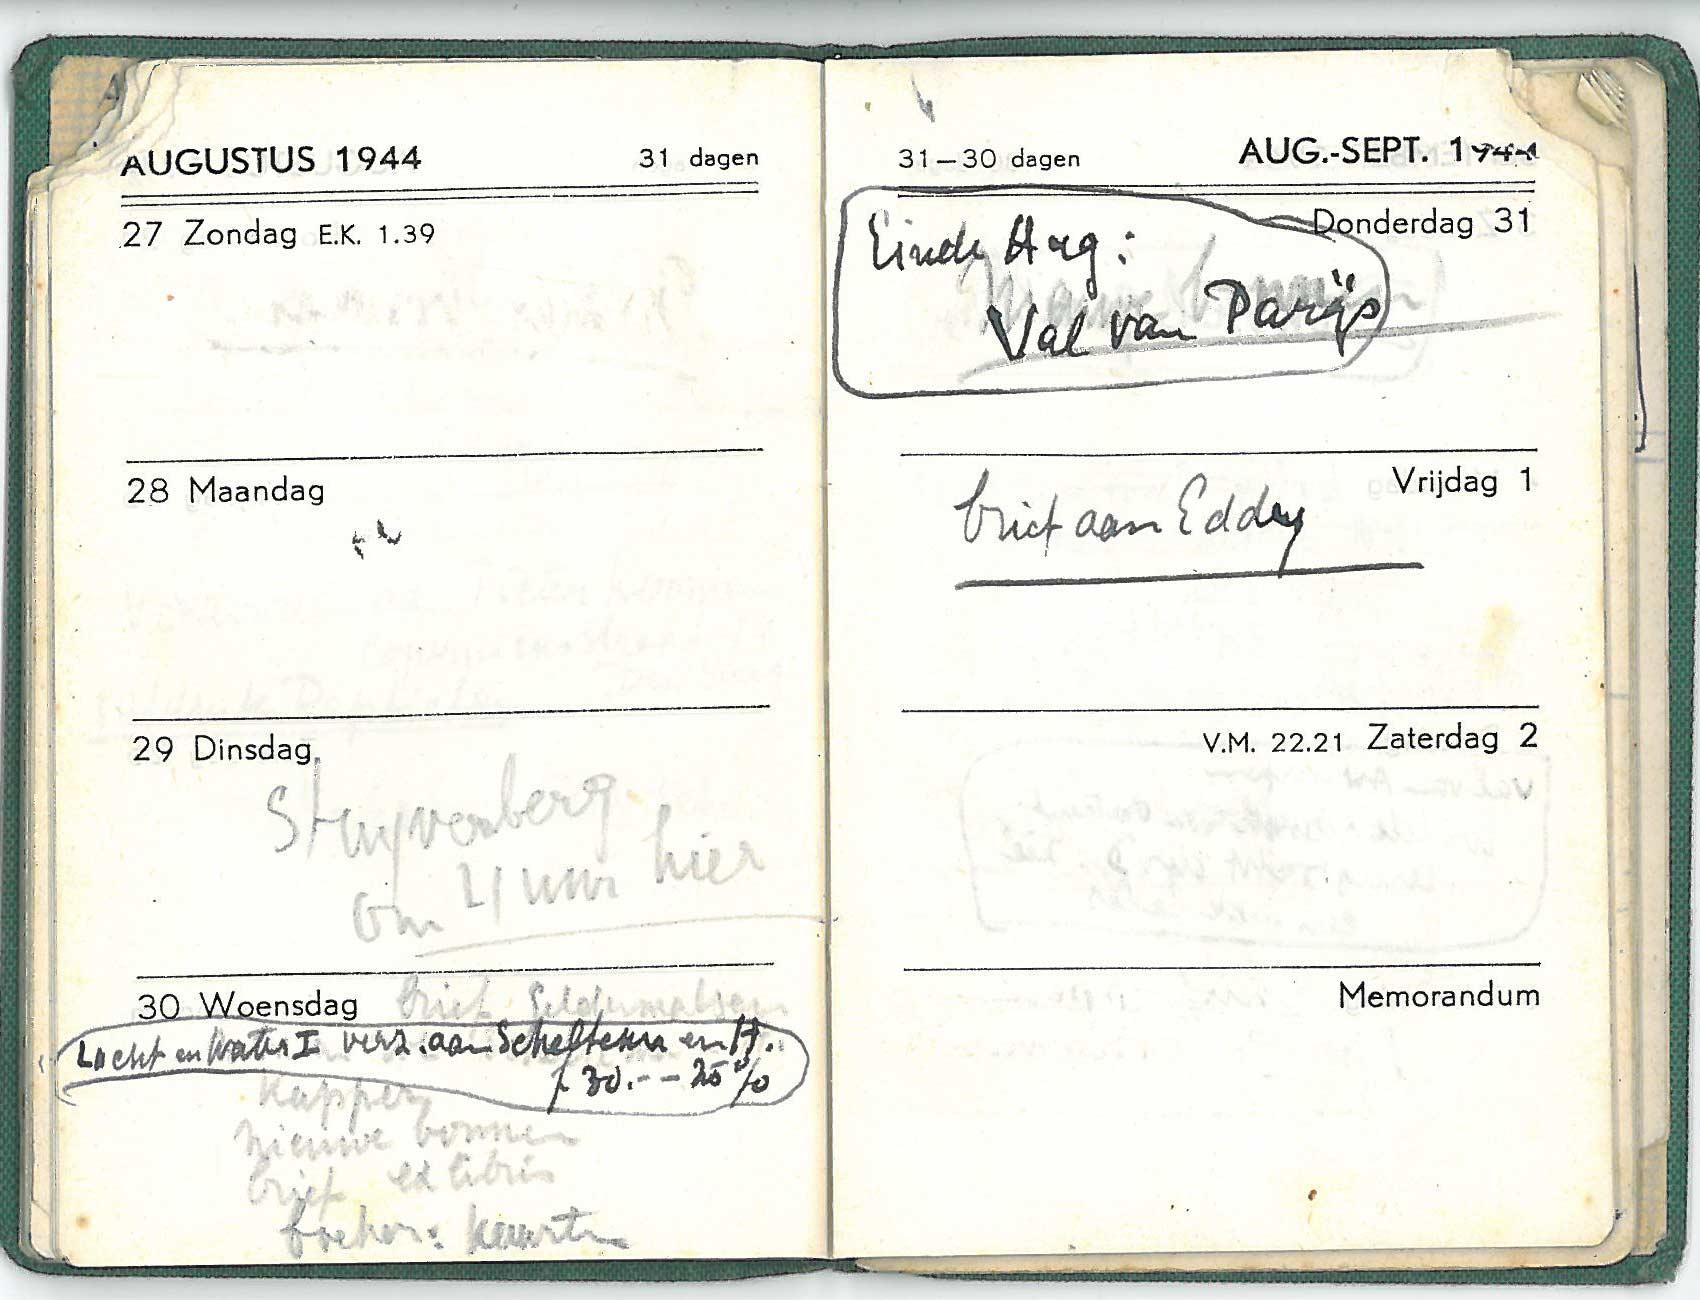 AUGUSTUS 1944 31 dagen
27 Zondag E.K. 1.39
28 Maandag
29 Dinsdag
Stuyvenberg
om 4 uur hier
30 Woensdag brief Geldermalsen
Lucht en Water I verz. aan Scheltema en H.
f 30.-- 25%
Kapper
nieuwe bonnen
brief ex libris
31–30 dagen AUG.-SEPT. 1944
Donderdag 31
Einde Aug:
nieuwe bonnen
Val van Parijs
Vrijdag 1
brief aan Eddy
V.M. 22.21 Zaterdag 2
Memorandum